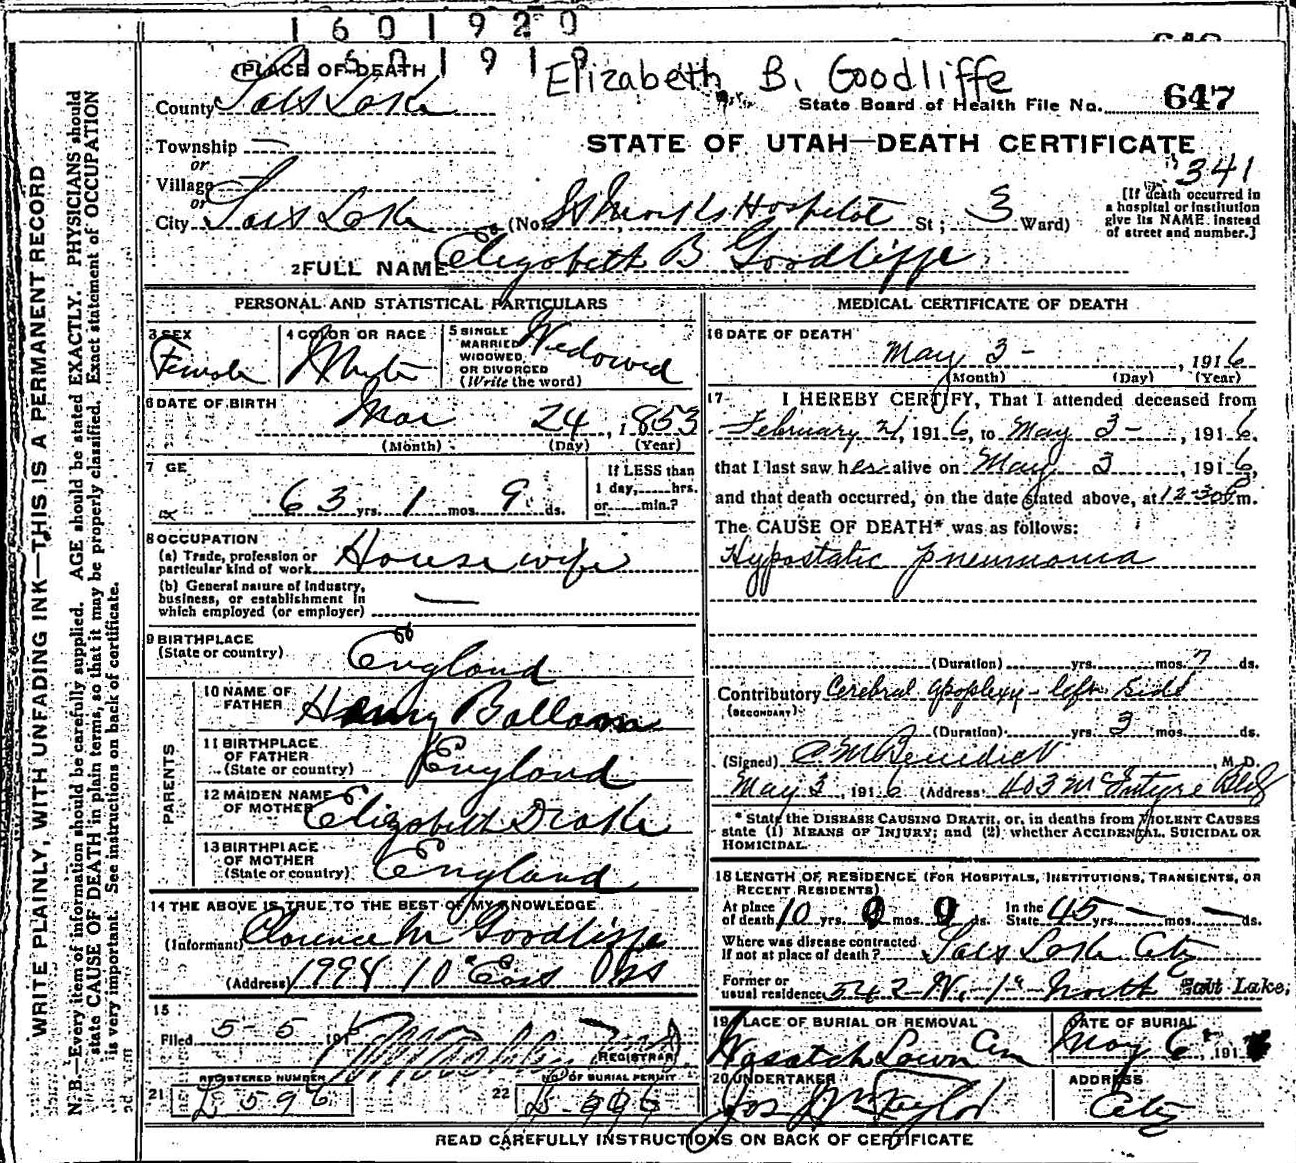 1 6 0 1 9 2 0
Elizabeth B. Goodliffe
PLACE OF DEATH
County Salt Lake
State Board of Health File No. 647
STATE OF UTAH—DEATH CERTIFICATE
Township —
or
Village —
or
City Salt Lake (No. St Marks Hospital St; 3 Ward)
341
[If death occurred in
a hospital or institution
give its NAME instead
of street and number.]
2 FULL NAME Elizabeth B Goodliffe
PERSONAL AND STATISTICAL PARTICULARS
3 SEX
Female
4 COLOR OR RACE
White
5 SINGLE
MARRIED
WIDOWED,
OR DIVORCED
(Write the word)
Widowed
6 DATE OF BIRTH
Mar 24, 1853
(Month) (Day) (Year)
7 GE
63 yrs. 1 mos. 9 ds.
If LESS than
1 day, hrs.
or min.?
8 OCCUPATION
(a) Trade, profession or
particular kind of work House wife
(b) General nature of industry,
business, or establishment in
which employed (or employer) —
9 BIRTHPLACE
(State or country) England
PARENTS
10 NAME OF
FATHER Henry Balloom
11 BIRTHPLACE
OF FATHER
(State or country) England
12 MAIDEN NAME
OF MOTHER Elizabeth Drake
13 BIRTHPLACE
OF MOTHER
(State or country) England
14 THE ABOVE IS TRUE TO THE BEST OF MY KNOWLEDGE
(Informant) Clarence M Goodliffe
(Address) 1994 10" East
15
Filed 5-5 191
REGISTRAR
21 REGISTERED NUMBER
22 NO. OF BURIAL PERMIT
MEDICAL CERTIFICATE OF DEATH
16 DATE OF DEATH
May 3 - , 1916
(Month) (Day) (Year)
17 I HEREBY CERTIFY, That I attended deceased from
February 21, 1916, to May 3 - , 1916,
that I last saw her alive on May 3, 1916,
and that death occurred, on the date stated above, at 12-30 P m.
The CAUSE OF DEATH* was as follows:
Hypostatic pneumonia
(Duration) yrs. mos. 7 ds.
Contributory Cerebral Apoplexy - left side
(SECONDARY)
(Duration) yrs. 3 mos. ds.
(Signed) C M Benedict, M. D.
May 3, 1916 (Address) 403 McIntyre Bldg
* State the DISEASE CAUSING DEATH, or, in deaths from VIOLENT CAUSES
state (1) MEANS OF INJURY; and (2) whether ACCIDENTAL, SUICIDAL OR
HOMICIDAL.
18 LENGTH OF RESIDENCE (FOR HOSPITALS, INSTITUTIONS, TRANSIENTS, OR
RECENT RESIDENTS)
At place
of death 10 yrs. 0 mos. 0 ds. In the
State 45 yrs. — mos. — ds.
Where was disease contracted
If not at place of death? Salt Lake City
Former or
usual residence 542 W. 1st North Salt Lake,
19 PLACE OF BURIAL OR REMOVAL
Wasatch Lawn Cem
DATE OF BURIAL
May 6, 191
20 UNDERTAKER
Jos Wm Taylor
ADDRESS
City
READ CAREFULLY INSTRUCTIONS ON BACK OF CERTIFICATE
WRITE PLAINLY, WITH UNFADING INK—THIS IS A PERMANENT RECORD
N. B.—Every item of information should be carefully supplied. AGE should be stated EXACTLY. PHYSICIANS should
state CAUSE OF DEATH in plain terms, so that it may be properly classified. Exact statement of OCCUPATION
is very important. See instructions on back of certificate.